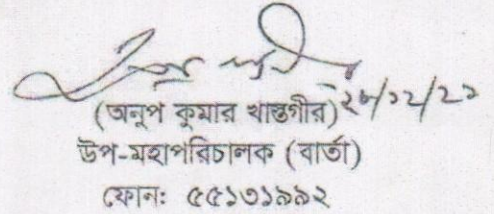 (অনুপ কুমার খাস্তগীর) ২৮/১২/২১
উপ-মহাপরিচালক (বার্তা)
ফোন: ৫৫১৩১৯৯২